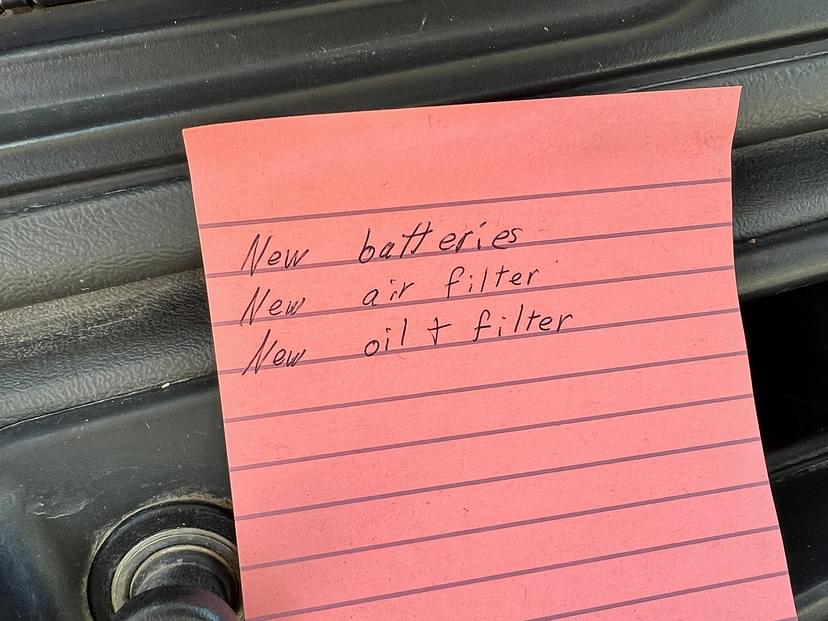 New batteries
New air filter
New oil + filter